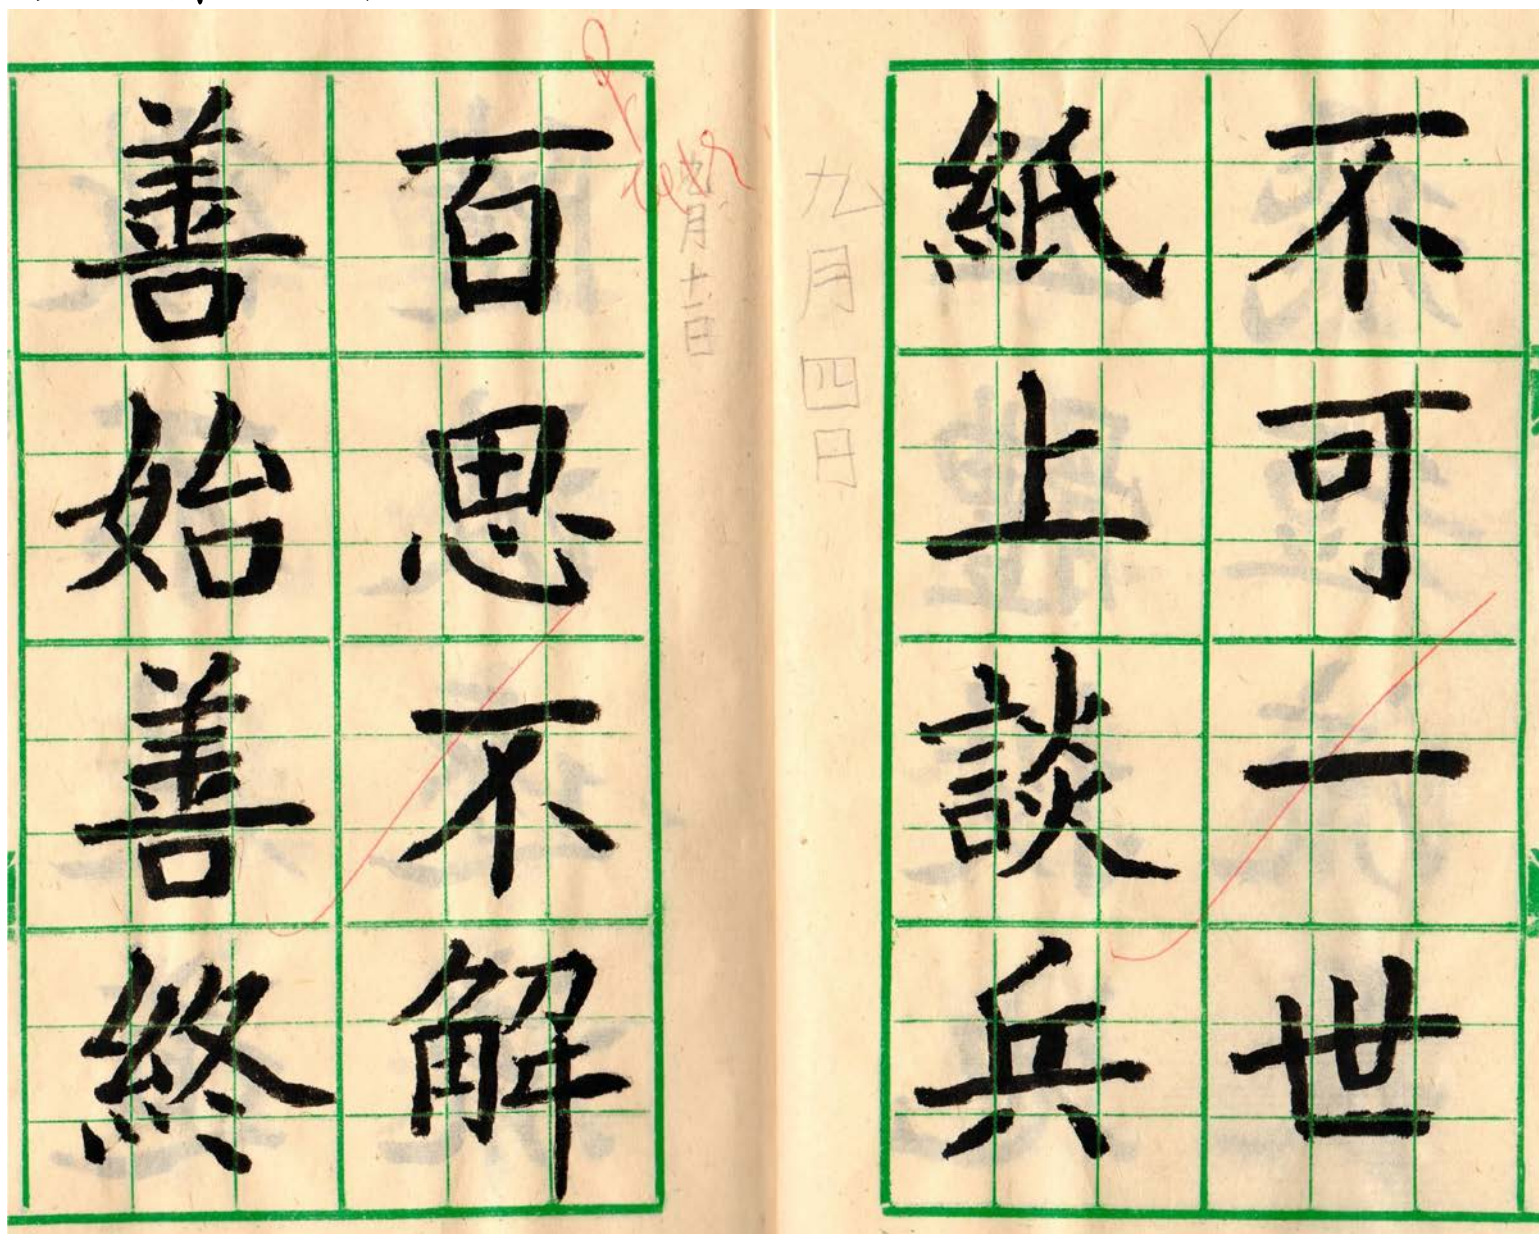 不可一世
紙上談兵
九月四日
九月十一日
百思不解
善始善終